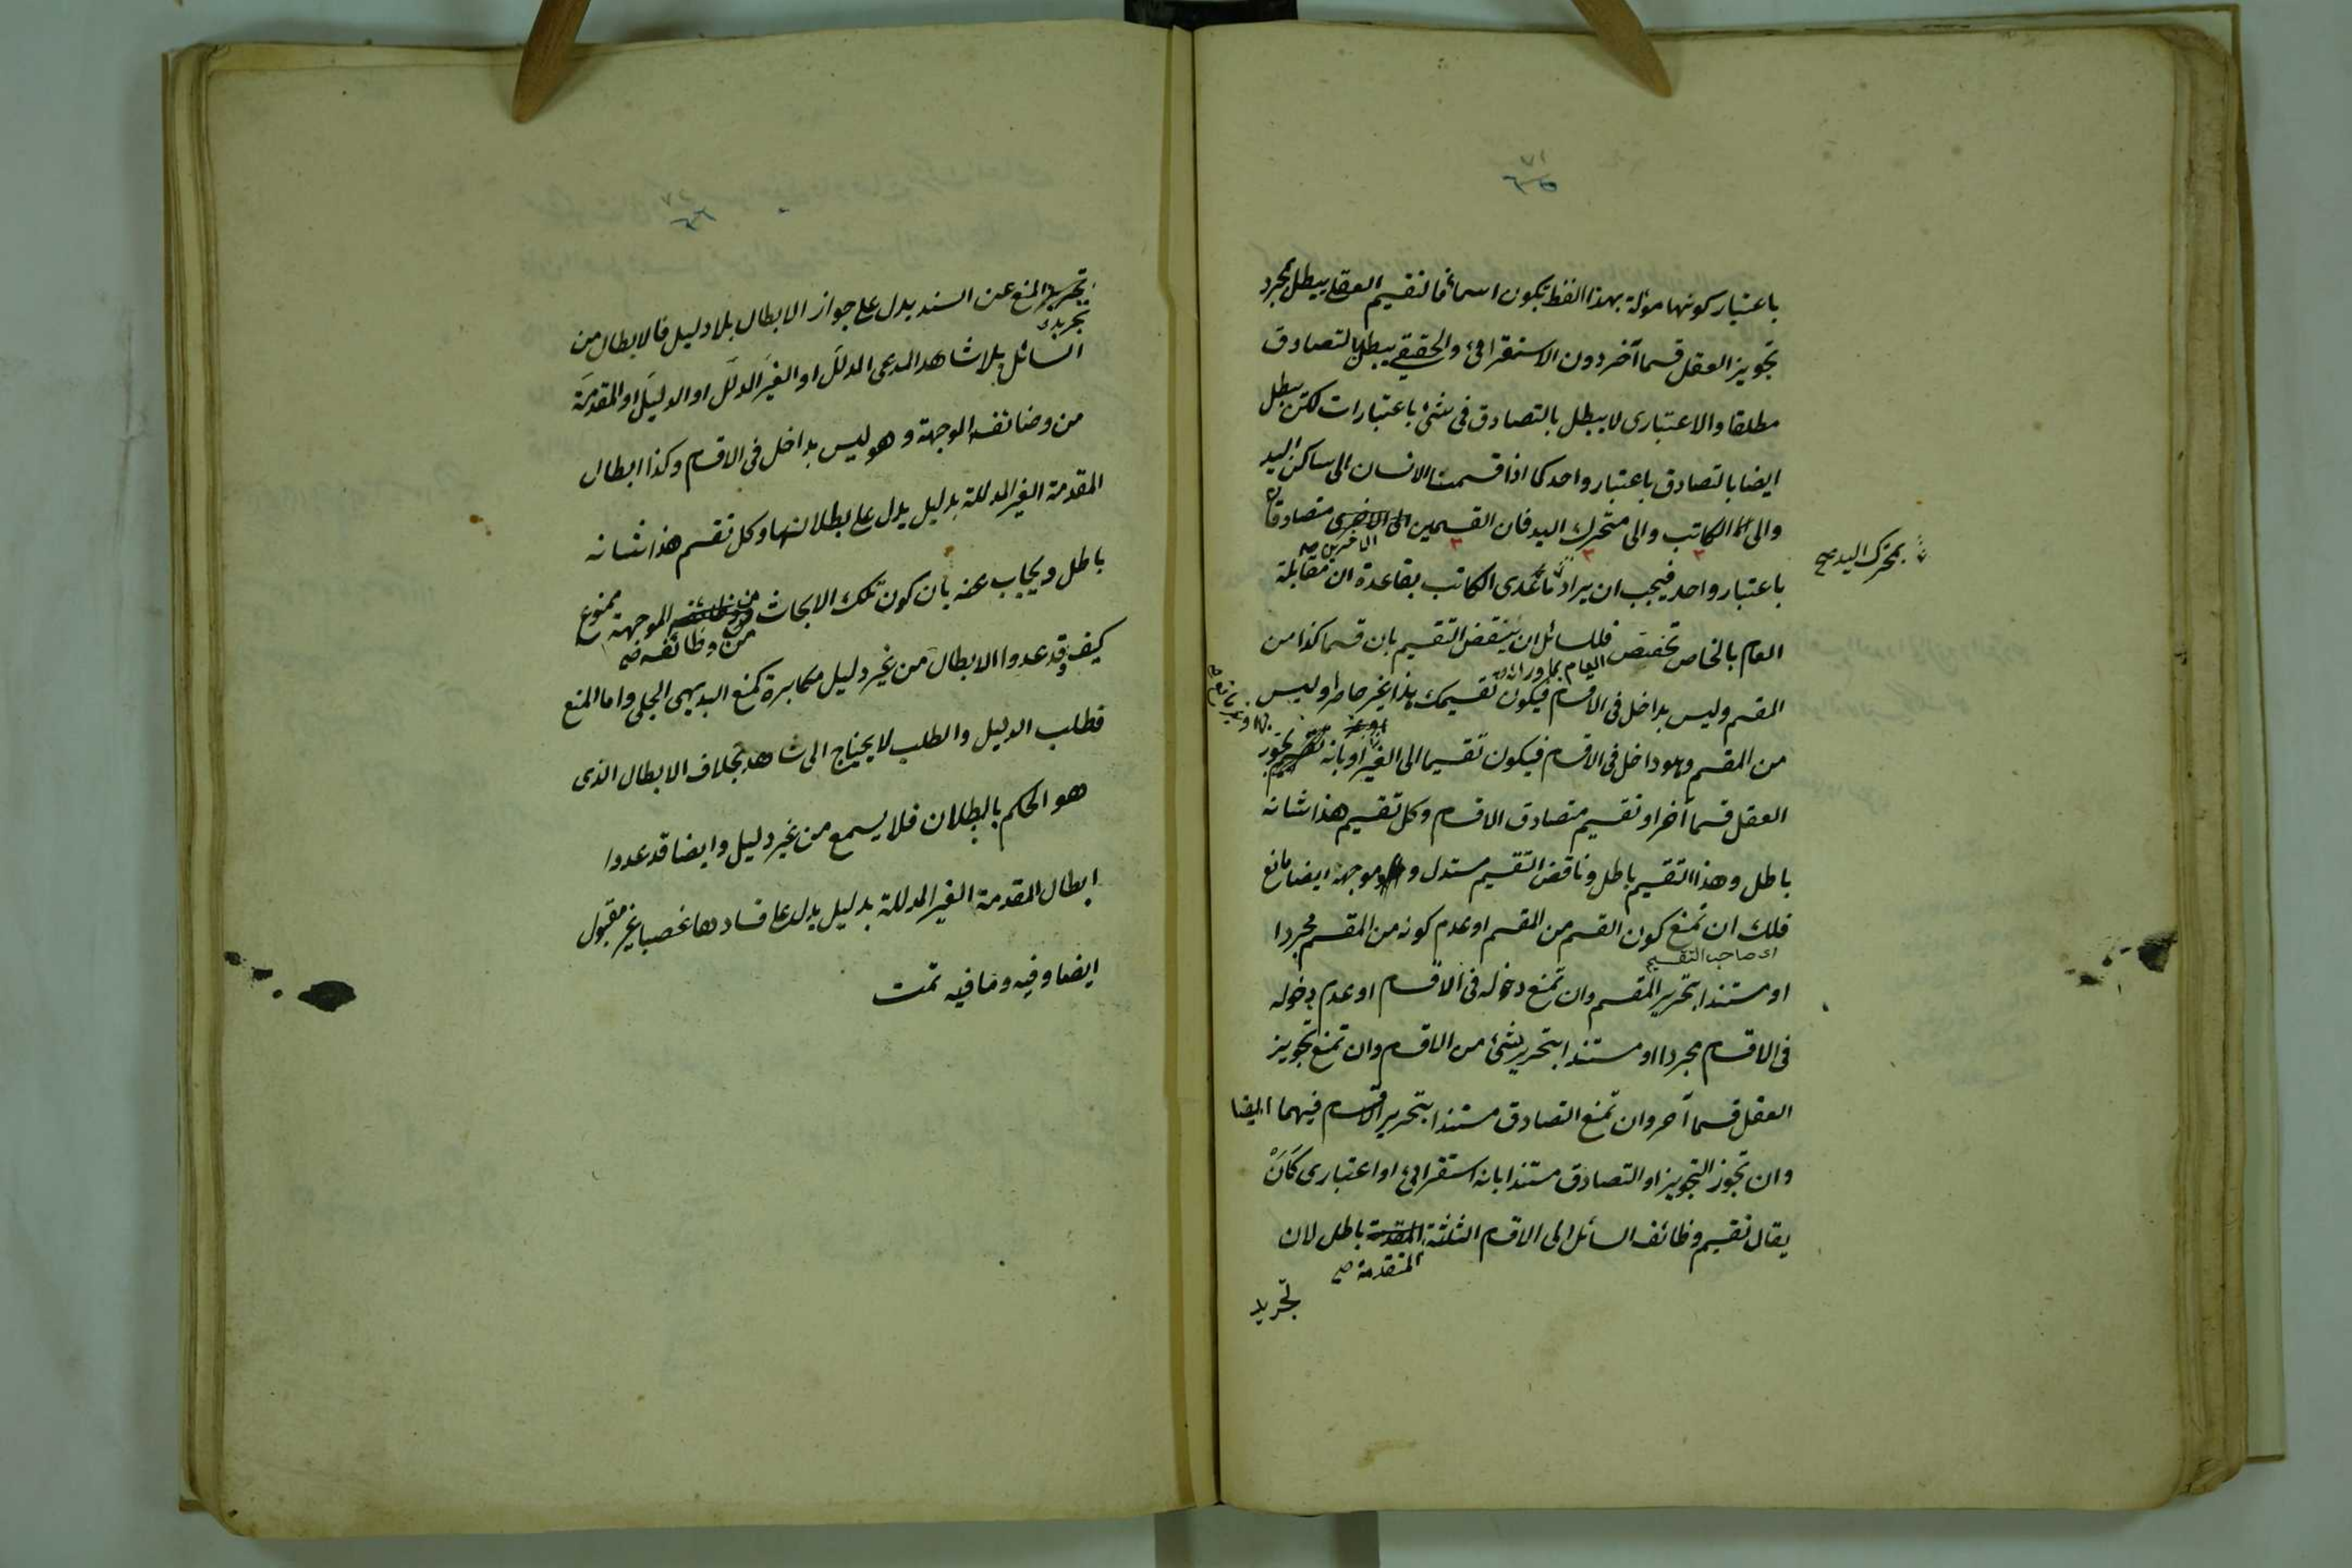 ٧١
٦٥
باعتبار كونها مؤلة بهذا اللفظ يكون اسما فما لتقسيم العقلي يبطل بمجرد
تجويز العقل قسما آخر دون الاستقرائى والحقيقى يبطل بالتصادق
مطلقا والاعتبارى لا يبطل بالتصادق فى شئ باعتبارات لكن يبطل
ايضا بالتصادق باعتبار واحد كما اذا قسمت الانسان الى ساكن اليد
والى الكاتب والى متحرك اليد فان القسمين متصادقان
الاخرين صح
بمتحرك اليد صح
باعتبار واحد فيجب ان يراد ماعدى الكاتب بقاعدة ان مقابلة
العام بالخاص تخصص فللسائل ان ينقض التقسيم بان قسما كذا من
العام بما وراءه
المقسم وليس بداخل فى الاقسام فيكون تقسيمك هذا غير حاصر او ليس
من المقسم وهو داخل فى الاقسام فيكون تقسيما الى الغير او بانه تقسيم يجوز
العقل قسما آخر او تقسيم متصادق الاقسام وكل تقسيم هذا شانه
باطل وهذا التقسيم باطل وناقض التقسيم مستدل وموجهه ايضا مانع
فلك ان تمنع كون القسم من المقسم او عدم كونه من المقسم مجردا
اى صاحب التقسيم
او مستندا بتحرير المقسم وان تمنع دخوله فى الاقسام او عدم دخوله
فى الاقسام مجردا او مستندا بتحرير شئ من الاقسام وان تمنع تجويز
العقل قسما آخر وان تمنع التصادق مستندا بتحرير الاقسام فيهما ايضا
وان تجوز التجويز او التصادق مستندا بانه استقرائى او اعتبارى كَاَنْ
يقال تقسيم وظائف السائل الى الاقسام الثلثة المقدمة باطل لان
المتقدمة صح
تجريد
٧٢
٦٦
تحرير المنع عن السند يدل على جواز الابطال بلا دليل فالابطال من
تجريد
السائل بلا شاهد المدعى المدلل او الغير المدلل او الدليل او المقدمة
من وضائفه الموجهة وهو ليس بداخل فى الاقسام وكذا ابطال
المقدمة الغير المدللة بدليل يدل على بطلانها وكل تقسيم هذا شانه
باطل ويجاب عنه بان كون تلك الابحاث من وظائفه الموجهة ممنوع
من وظائفه صح
كيف وقد عدوا الابطال من غير دليل مكابرة كمنع البديهى الجلى واما المنع
فطلب الدليل والطلب لا يحتاج الى شاهد بخلاف الابطال الذى
هو الحكم بالبطلان فلا يسمع من غير دليل وايضا قد عدوا
ابطال المقدمة الغير المدللة بدليل يدل على فسادها غصبا غير مقبول
ايضا وفيه وما فيه تمت